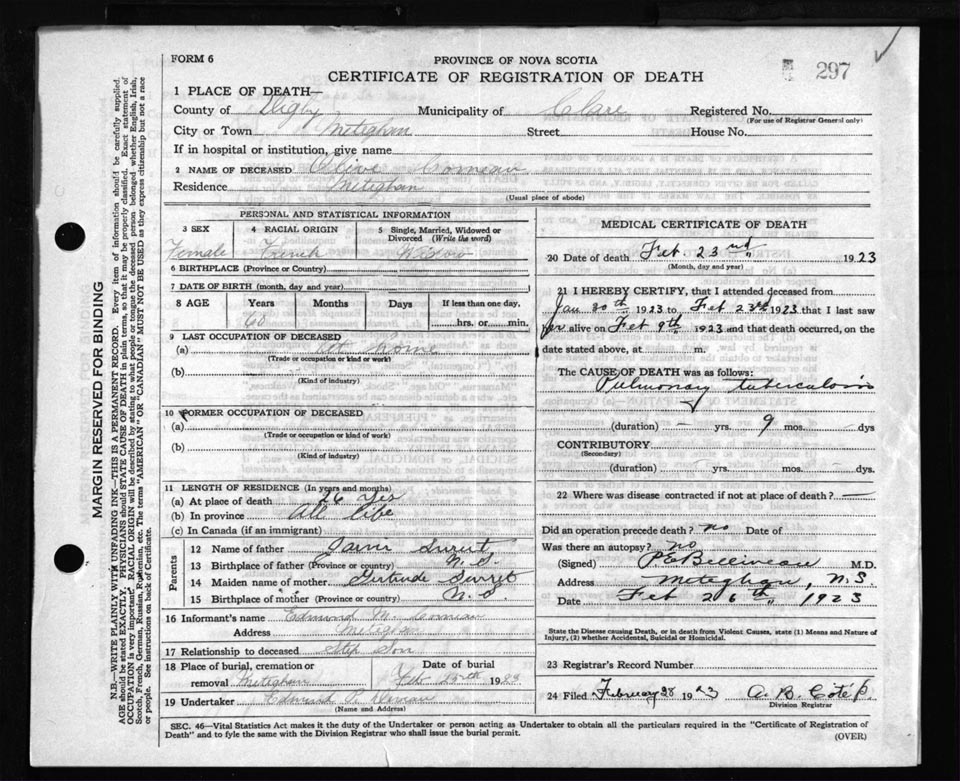 FORM 6
PROVINCE OF NOVA SCOTIA
CERTIFICATE OF REGISTRATION OF DEATH
297
1 PLACE OF DEATH—
County of Digby Municipality of Clare Registered No.
(For use of Registrar General only)
City or Town Meteghan Street House No.
If in hospital or institution, give name
2 NAME OF DECEASED Olive Comeau
Residence Meteghan
(Usual place of abode)
PERSONAL AND STATISTICAL INFORMATION
3 SEX 4 RACIAL ORIGIN 5 Single, Married, Widowed or Divorced (Write the word)
Female French Widow
6 BIRTHPLACE (Province or Country)
7 DATE OF BIRTH (month, day and year)
8 AGE Years Months Days If less than one day,
60 hrs. or min.
9 LAST OCCUPATION OF DECEASED
(a) At home
(Trade or occupation or kind of work)
(b)
(Kind of industry)
10 FORMER OCCUPATION OF DECEASED
(a)
(Trade or occupation or kind of work)
(b)
(Kind of industry)
11 LENGTH OF RESIDENCE (In years and months)
(a) At place of death 26 yrs
(b) In province All life
(c) In Canada (if an immigrant)
Parents
12 Name of father Surett
13 Birthplace of father (Province or country) N.S.
14 Maiden name of mother Gertrude Surret
15 Birthplace of mother (Province or country) N.S.
16 Informant's name Edmund M. Comeau
Address Meteghan
17 Relationship to deceased Step Son
18 Place of burial, cremation or Date of burial
removal Meteghan Feb 25th 1923
19 Undertaker Edmund
(Name and Address)
MEDICAL CERTIFICATE OF DEATH
20 Date of death Feb. 23rd 1923
(Month, day and year)
21 I HEREBY CERTIFY, that I attended deceased from
Jan 30th 1923 to Feb 23rd 1923 that I last saw
her alive on Feb 9th 1923 and that death occurred, on
date stated above, at m.
The CAUSE OF DEATH was as follows:
Pulmonary tuberculosis
(duration) — yrs. 9 mos. — dys
CONTRIBUTORY
(Secondary)
(duration) — yrs. — mos. — dys.
22 Where was disease contracted if not at place of death? —
Did an operation precede death? no Date of
Was there an autopsy? no
(Signed) P.E. Belliveau M.D.
Address Meteghan, N.S.
Date Feb 26th, 1923
State the Disease causing Death, or in death from Violent Causes, state (1) Means and Nature of
Injury, (2) whether Accidental, Suicidal or Homicidal.
23 Registrar's Record Number
24 Filed February 28 1923 A. B. Côté
Division Registrar
SEC. 46—Vital Statistics Act makes it the duty of the Undertaker or person acting as Undertaker to obtain all the particulars required in the "Certificate of Registration of
Death" and to fyle the same with the Division Registrar who shall issue the burial permit.
(OVER)
MARGIN RESERVED FOR BINDING
N.B.—WRITE PLAINLY WITH UNFADING INK—THIS IS A PERMANENT RECORD. Every item of information should be carefully supplied.
AGE should be stated EXACTLY. PHYSICIANS should STATE CAUSE OF DEATH in plain terms, so that it may be properly classified. Exact statement of
OCCUPATION is very important. RACIAL ORIGIN will be described by stating to what people or tongue the deceased person belonged whether English, Irish,
Scotch, French, German, Russian, Ruthenian, etc. The terms "AMERICAN" OR "CANADIAN" MUST NOT BE USED as they express citizenship but not a race
or people. See instructions on back of Certificate.